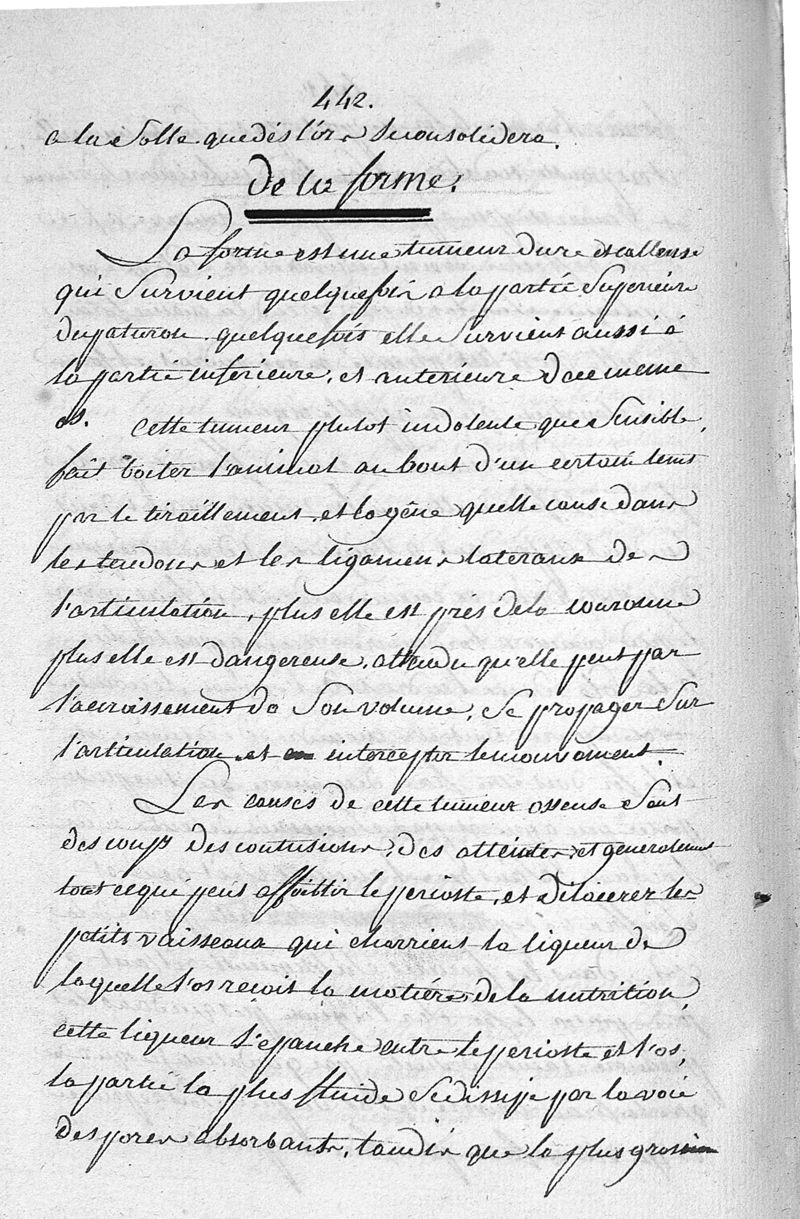 442.
a la Solle que dés l'os se consolidera.
De la forme.
La forme est une tumeur dure et calleuse
qui Survient quelquefois a la partie Superieure
du paturon, quelquefois elle Survient aussi à
la partie inferieure, et anterieure de ce meme
os. Cette tumeur plutot indolente que Sensible,
fait boiter l'animal au bout d'un certain tems
par le tiraillement, et la gêne quelle cause dans
les tendons et les ligamens lateraux de
l'articulation, plus elle est pres de la couronne
plus elle est dangereuse, attendu qu'elle peut par
l'accroissement de Son volume, Se propager Sur
l'articulation et en intercepter le mouvement
Les causes de cette tumeur osseuse Sont
des coups des contusions, des atteintes, et generalement
tout ce que peut affoiblir le perioste, et dilacerer les
petits vaisseaux qui charrient la liqueur de
laquelle l'os recoit la matiére de la nutrition,
cette liqueur s'epanche entre le perioste et l'os,
la partie la plus fluide Se dissipe par la voie
des pores absorbants, tandis que la plus grossiere